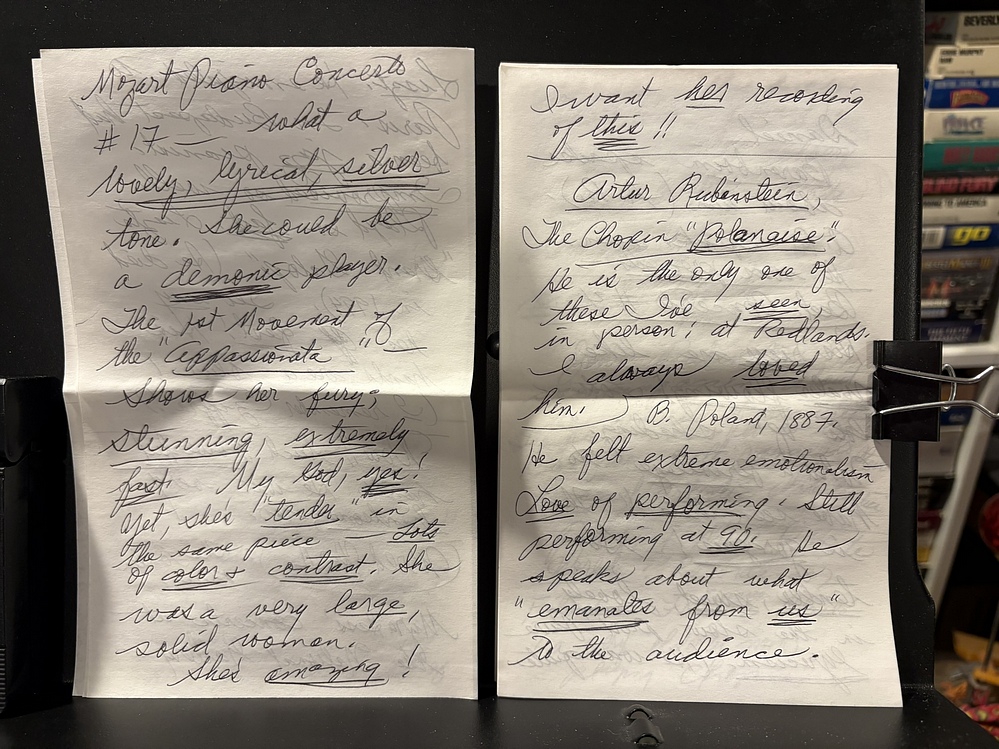 Mozart Piano Concerto
#17 — what a
lovely, lyrical, silver
tone. She could be
a demonic player.
The 1st Movement of
the "Appassionata" —
Shows her fury;
stunning, extremely
fast. My God, yes!
Yet, she's "tender" in
the same piece — Lots
of color & contrast. She
was a very large,
solid woman.
She's amazing!
I want her recording
of this!!
Artur Rubenstein,
The Chopin "Polanaise".
He is the only one of
these I've seen,
in person; at Redlands.
I always loved
him. B. Poland, 1887.
He felt extreme emotionalism
Love of performing. Still
performing at 90. He
speaks about what
"emanates from us"
to the audience.
BEVERLY
go